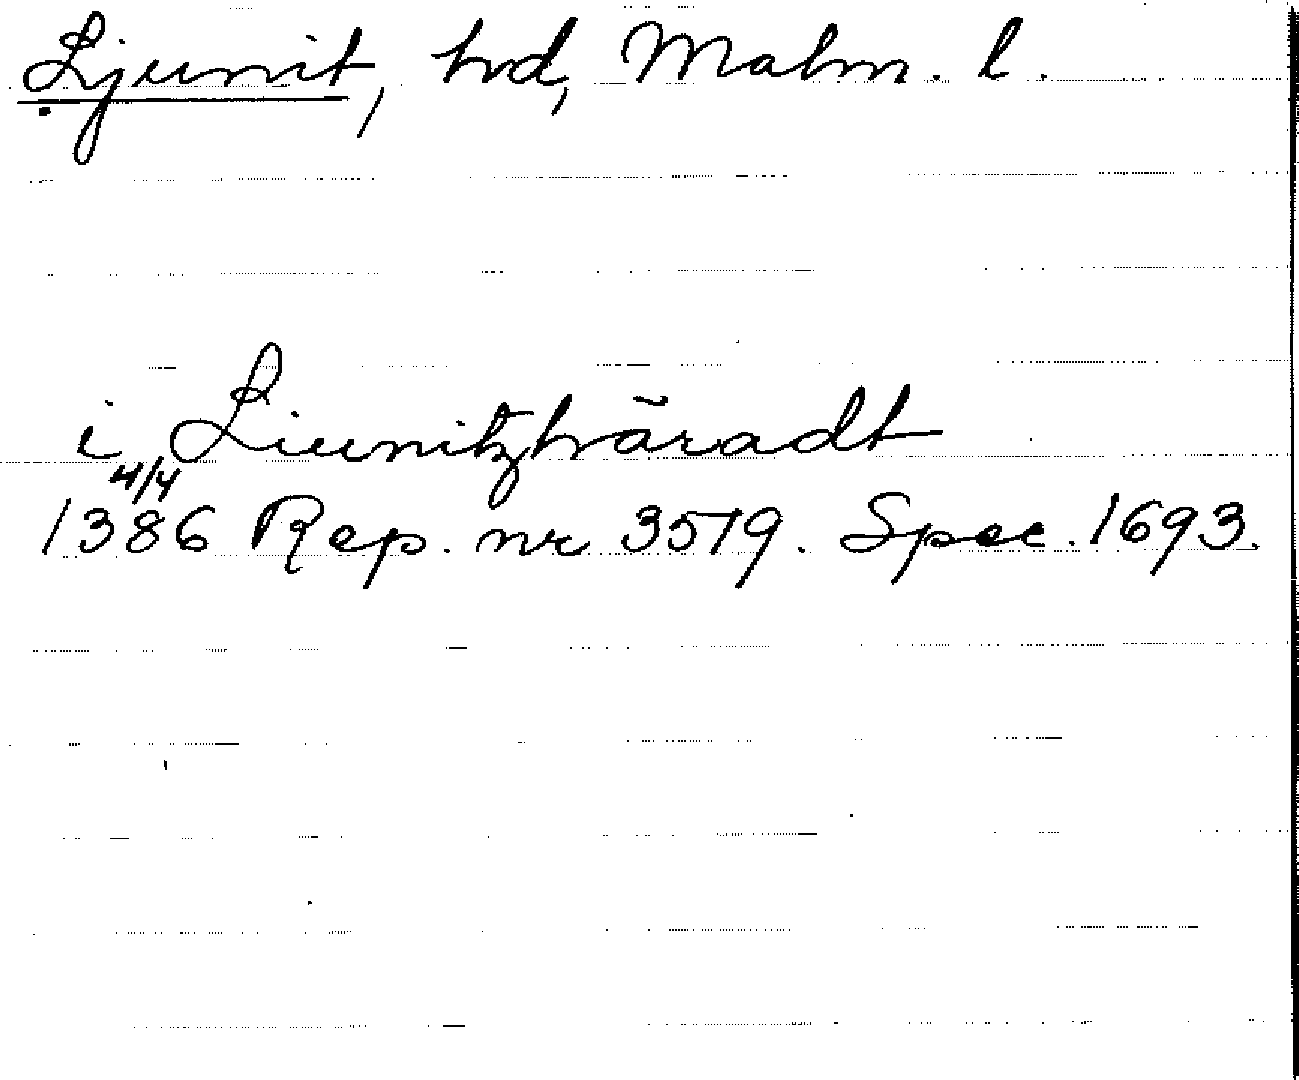 Ljunit, hd, Malm. l.
i Liunitzhäradt
4/4
1386 Rep. nr 3519. Spec. 1693.